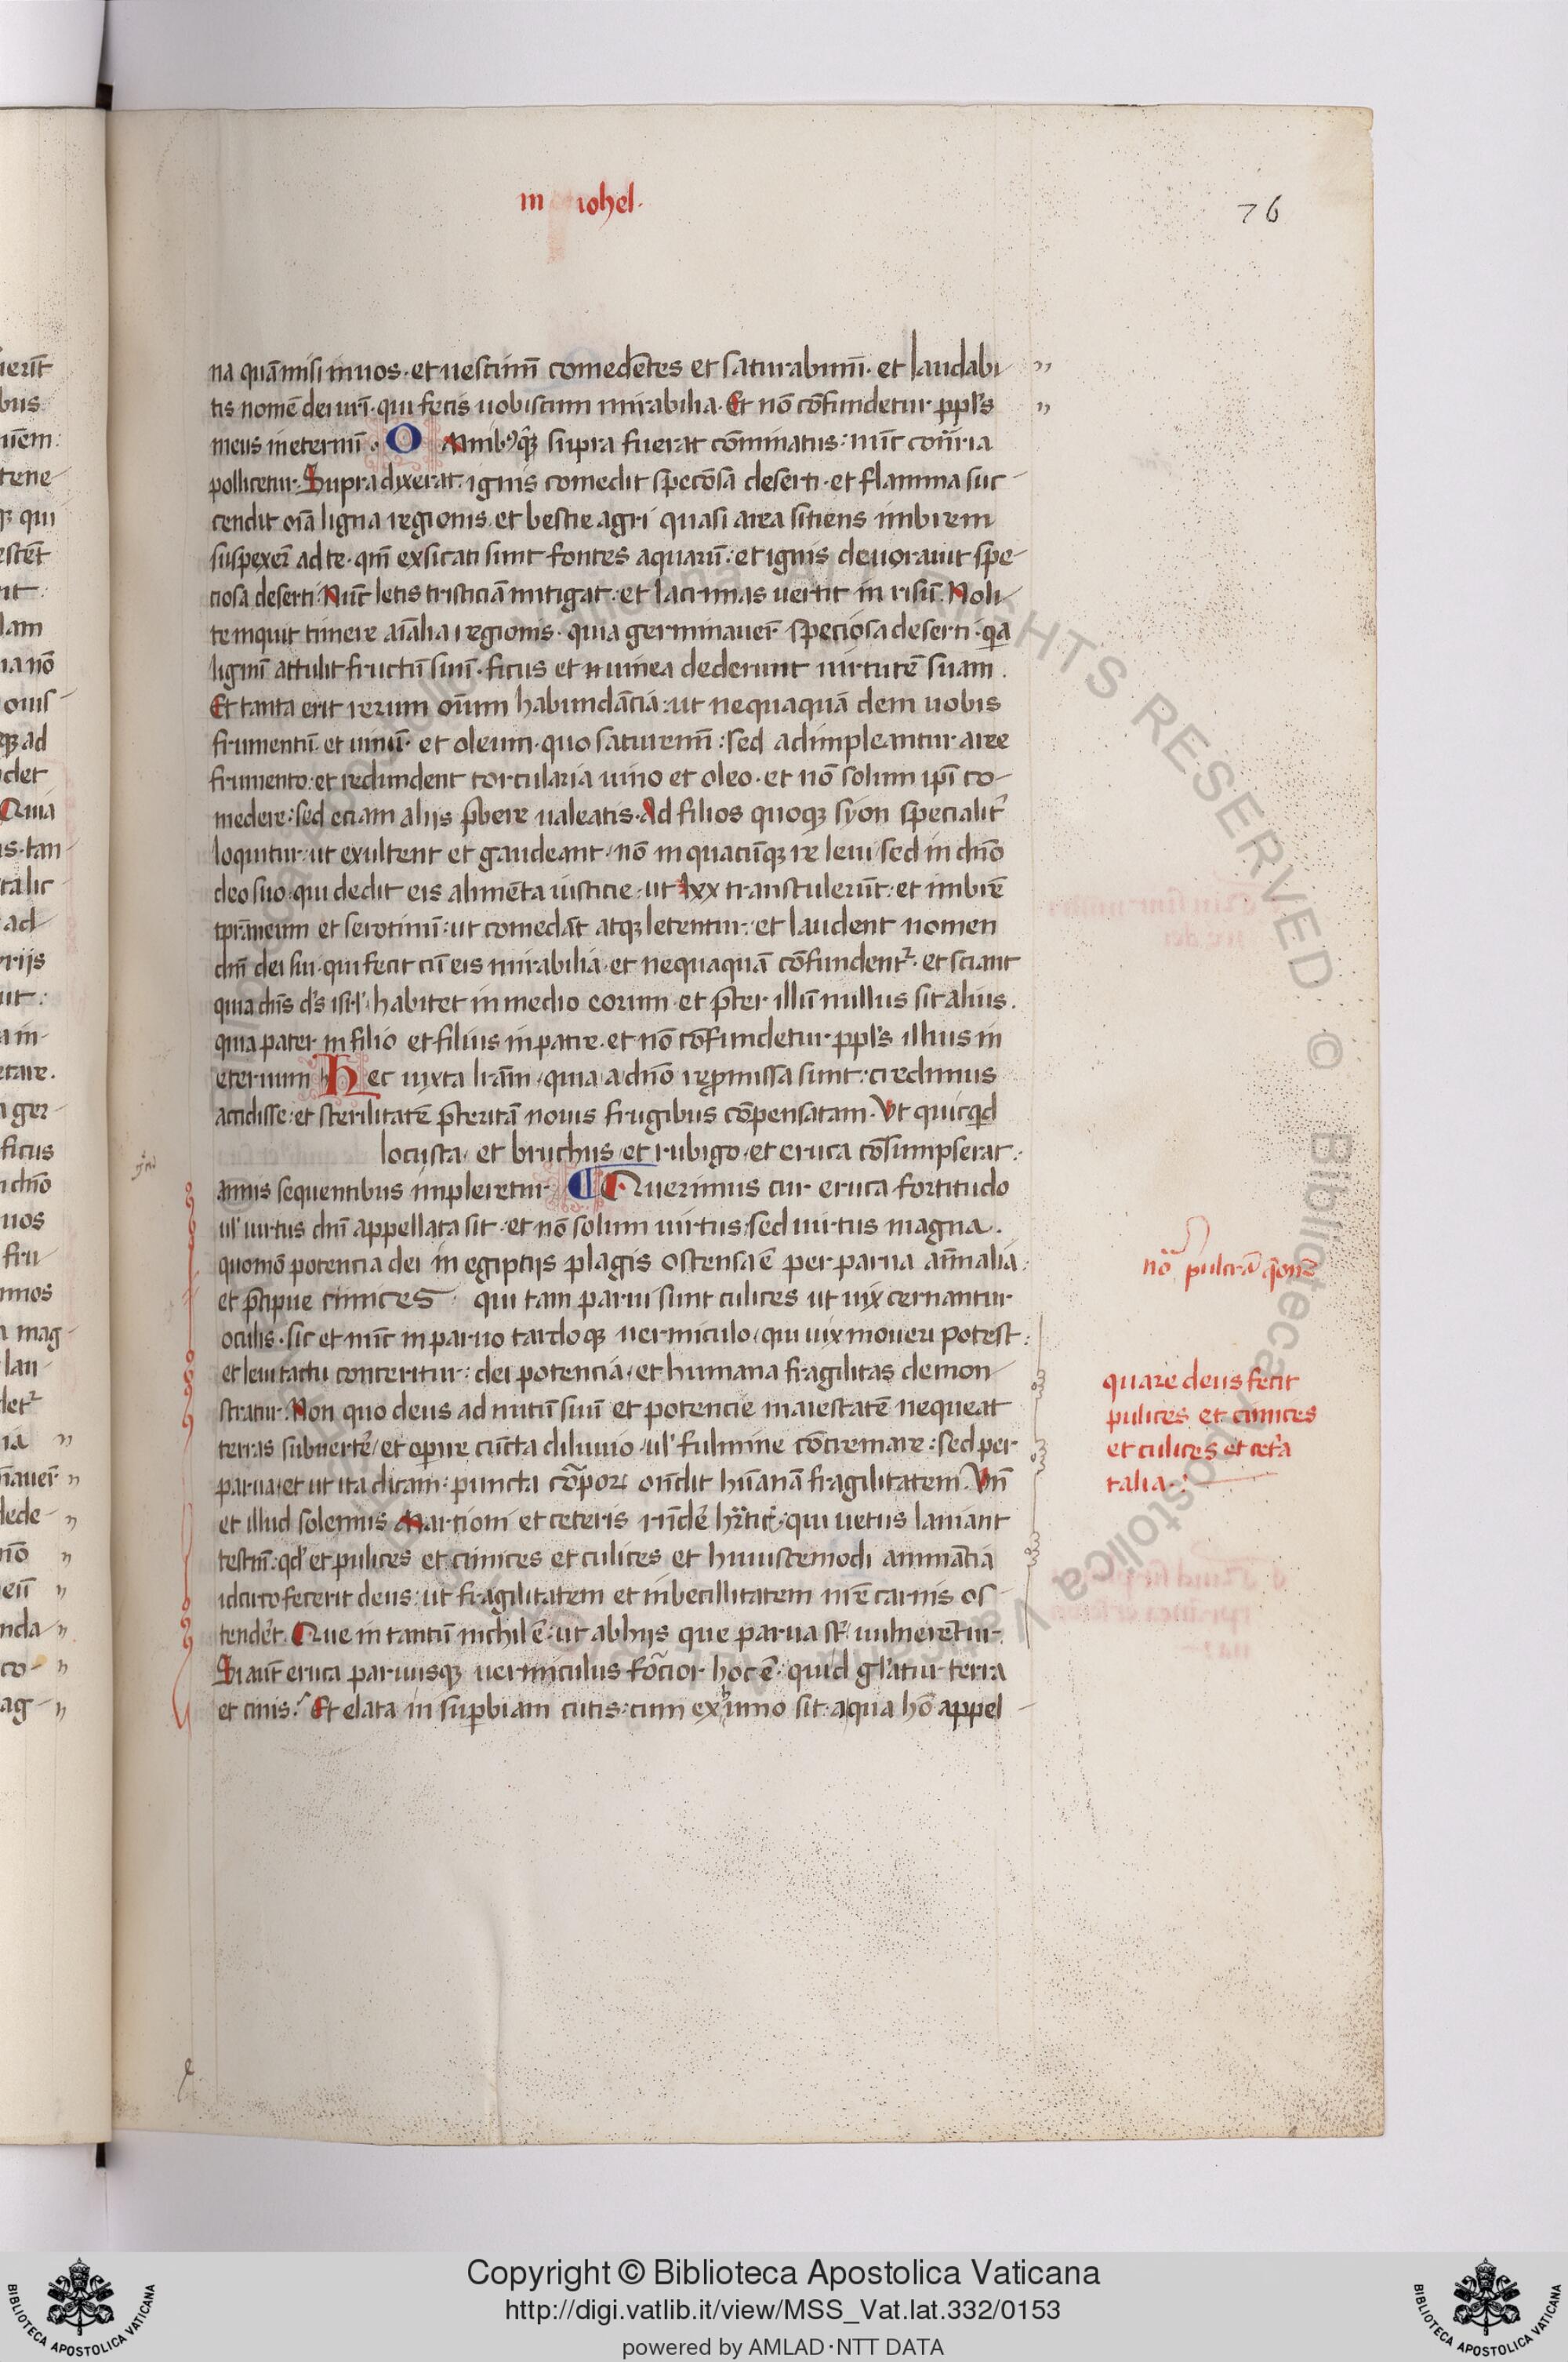 in iohel.
76
na quā misi in uos. et uescimī comedētes et saturabimī. et laudabi
tis nomē dei urī. qui fecit uobiscum mirabilia. Et nō cōfundetur ppl's
meus in eternū. Omnibꝰ q̄ supra fuerat cōminatus: nūc cōtrria
pollicetur. Supra dixerat. ignis comedit specōsa deserti. et flamma suc
cendit oīa ligna regionis. et bestie agri quasi area sitiens imbrem
suspexert ad te. qm̄ exsicati sunt fontes aquarū. et ignis deuorauit spe
ciosa deserti. Nūc letis tristiciā mitigat. et lacrimas uertit in risū. Noli
te inquit timere aīalia regionis. quia germinauert speciosa deserti. qa
lignū attulit fructū suū. ficus et uinea dederunt uirtutē suam.
Et tanta erit rerum oīum habundācia: ut nequaquā dem uobis
frumentū. et uinū. et oleum. quo saturemī: sed adimpleantur aree
frumento. et redundent torcularia uino et oleo. et nō solum ipī co
medere: sed eciam alijs p̄bere ualeatis. Ad filios quoqꝫ syon specialit'
loquitur: ut exultent et gaudeant. nō in quacūqꝫ re leui sed in dn̄o
deo suo. qui dedit eis alimēta iusticie. ut lxx transtulerūt. et imbrē
tpraneum et serotinū: ut comedāt atqꝫ letentur. et laudent nomen
dn̄i dei sui. qui fecit cū eis mirabilia. et nequaquā cōfundentr. et sciant
quia dn̄s d's isrl' habitet in medio eorum. et p̄ter illū nullus sit alius.
quia pater in filio et filius in patre. et nō cōfundetur ppl's illius in
eternum. Hec iuxta lrām. quia a dn̄o repmissa sunt: credimus
accidisse. et sterilitatē p̄teritā nouis frugibus cōpensatam. Vt quicqd
locusta. et bruchus et rubigo. et eruca cōsumpserat.
annis sequentibus impleretur. Querimus cur eruca fortitudo
ul' uirtus dn̄i appellata sit. et nō solum uirtus: sed uirtus magna.
quomō potencia dei in egiptijs plagis ostensa ē per parua aīmalia.
et p̄cipue cinices qui tam parui sunt culices ut uix cernantur
oculis. sic et nūc in paruo tardoqꝫ uermiculo. qui uix moueri potest.
et leui tactu conteritur: dei potencia. et humana fragilitas demon
stratur. Non quo deus ad nutū suū et potencie maiestatē nequeat
terras subuertē. et opire cūcta diluuio. ul' fulmine cōcremare: sed per
parua. et ut ita dicam: puncta cōpoꝝ ondit hūanā fragilitatem. Vn̄
et illud solemus Marcioni et ceteris rn̄dē hrticꝭ. qui uetus laniant
testm̄: qd' et pulices et cimices et culices et huiuscemodi animātia
idcirco fecerit deus: ut fragilitatem et inbecillitatem nrē carnis os
tendēt. Que in tantū nichil ē: ut ab hijs que parua st' uulnerētur.
Si aūt eruca paruusqꝫ uermiculus forcior hoc ē: quid gl'atur terra
et cinis? Et elata in supbiam cutis: cum eximo sit. a qua hō appel
nō pulcrā q̄onē
quare deus fecit
pulices et cimices
et culices et cet'a
talia.
RIGHTS RESERVED © Biblioteca Apostolica Vaticana
Copyright © Biblioteca Apostolica Vaticana
http://digi.vatlib.it/view/MSS_Vat.lat.332/0153
powered by AMLAD·NTT DATA
BIBLIOTECA APOSTOLICA VATICANA
BIBLIOTECA APOSTOLICA VATICANA